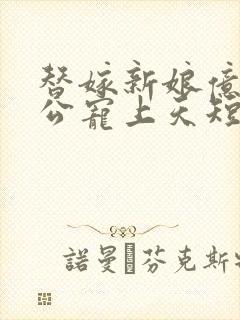 替嫁新娘億
公寵上天短
諾曼 芬克斯